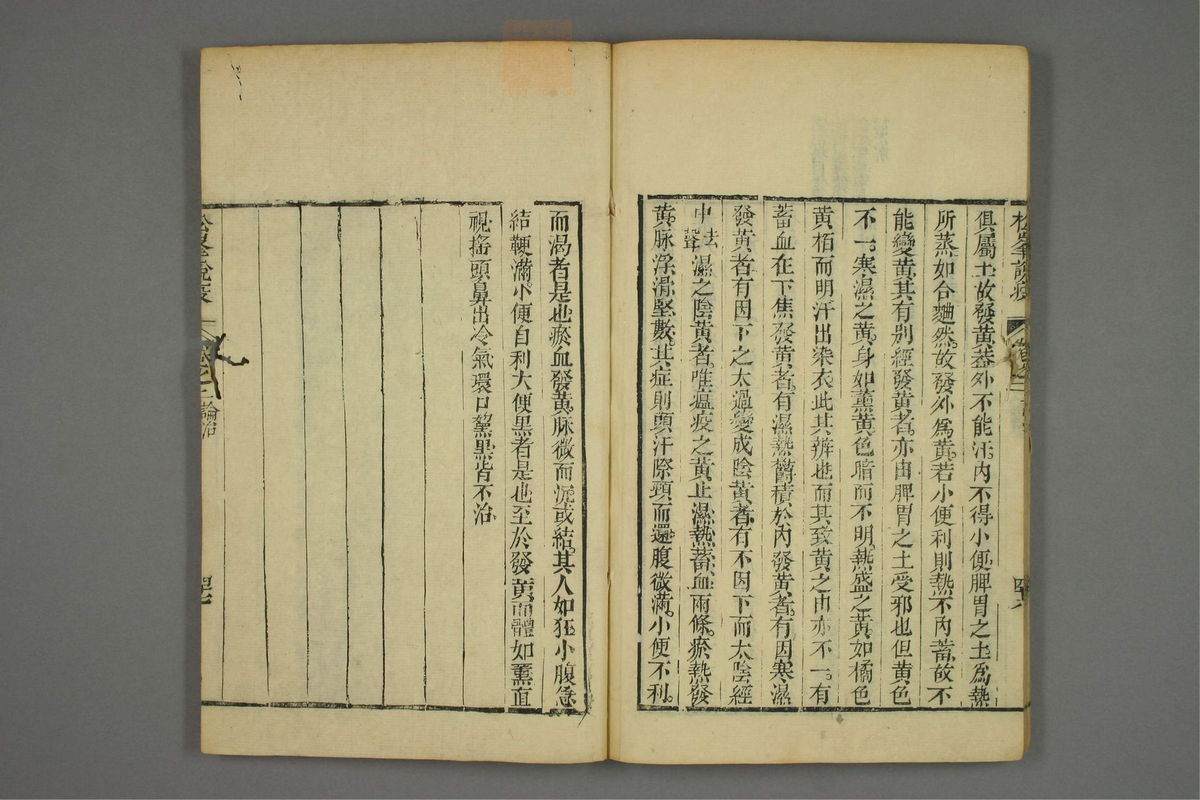 松峯說疫
俱屬土。故發黃。葢外不能汗。內不得小便。脾胃之土爲熱
所蒸。如合麯然。故發外爲黃。若小便利則熱不內蓄。故不
能變黃。其有別經發黃者。亦由脾胃之土受邪也。但黃色
不一。寒濕之黃。身如薰黃。色暗而不明。熱盛之黃。如橘色
黃栢而明。汗出染衣。此其辨也。而其致黃之由亦不一。有
蓄血在下焦發黃者。有濕熱欝積於內發黃者。有因寒濕
發黃者。有因下之太過變成陰黃者。有不因下而太陰經
中去聲濕之陰黃者。唯瘟疫之黃。止濕熱蓄血兩條。瘀熱發
黃。脉浮滑堅數。其症則頭汗際頸而還。腹微滿。小便不利。
而渴者是也。瘀血發黃。脉微而沉或結。其人如狂。小腹急
結鞕滿。小便自利。大便黑者是也。至於發黃而體如薰。直
視搖頭。鼻出冷氣。環口黧黑。皆不治。
松峯說疫
卷之二 論治